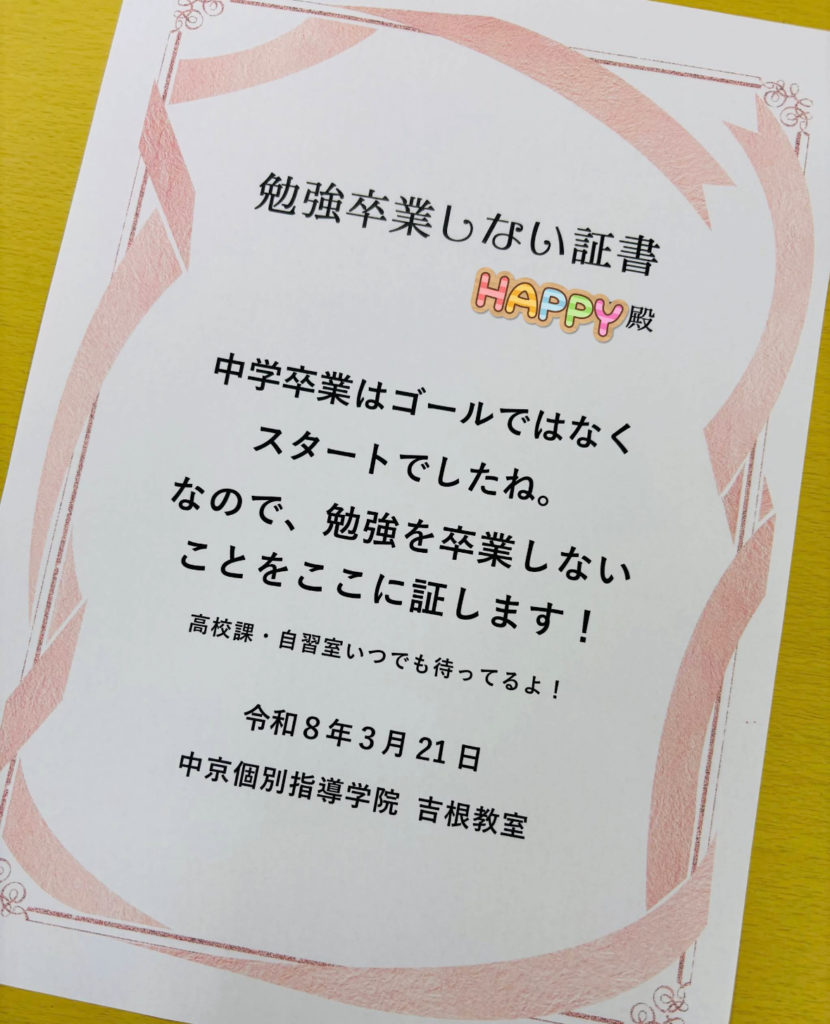 勉強卒業しない証書
HAPPY殿
中学卒業はゴールではなく
スタートでしたね。
なので、勉強を卒業しない
ことをここに証します！
高校課・自習室いつでも待ってるよ！
令和８年３月 21 日
中京個別指導学院 吉根教室